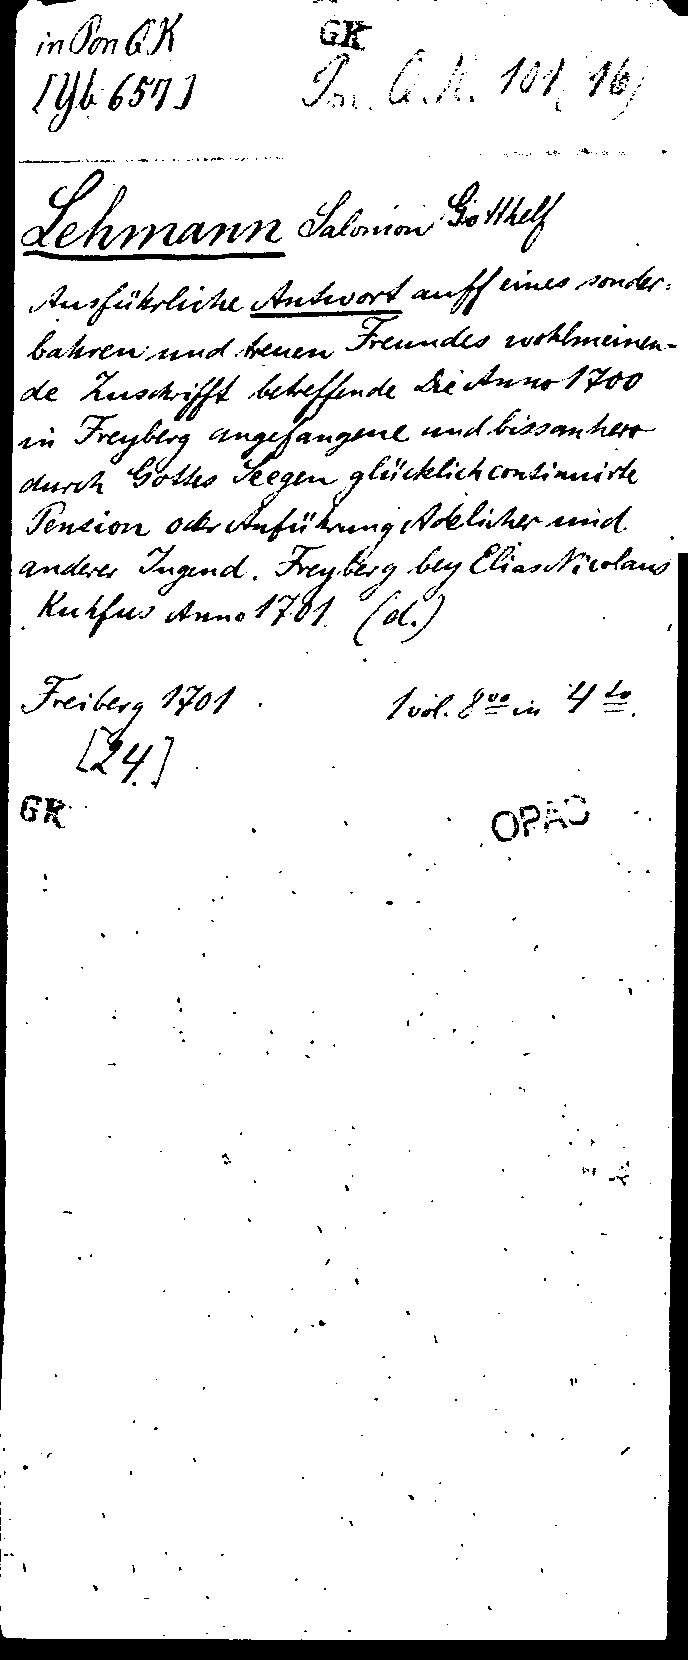 in Pon QK
GK
[Yb 657]
Pon. Q. K. 101, (16)
Lehmann Salomon Gotthelf
Ausführliche Antwort auff eines sonder-
bahren und treuen Freundes wohlmeinen-
de Zuschrifft betreffende Die Anno 1700
in Freyberg angefangene und bissanhero
durch Gottes Seegen glücklich continuirte
Pension oder Anführung Adelicher und
anderer Jugend. Freyberg bey Elias Nicolaus
Kuhfus Anno 1701. (d.)
Freiberg 1701
1 vol. 8vo in 4to.
[24.]
GK
OPAC